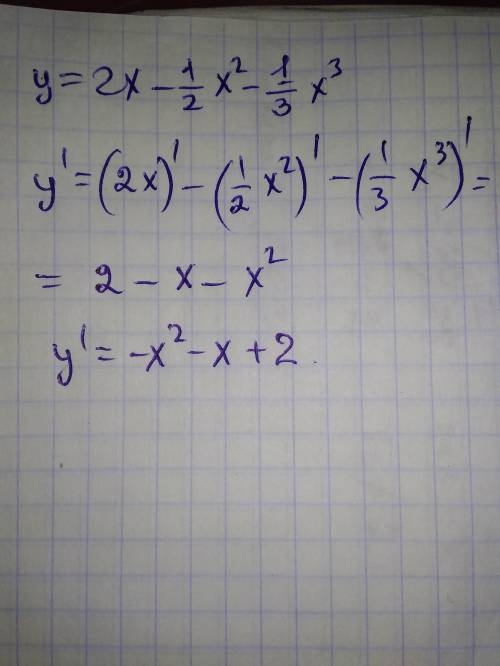 y = 2x - 1/2 x² - 1/3 x³
y' = (2x)' - (1/2 x²)' - (1/3 x³)' =
= 2 - x - x²
y' = -x² - x + 2.